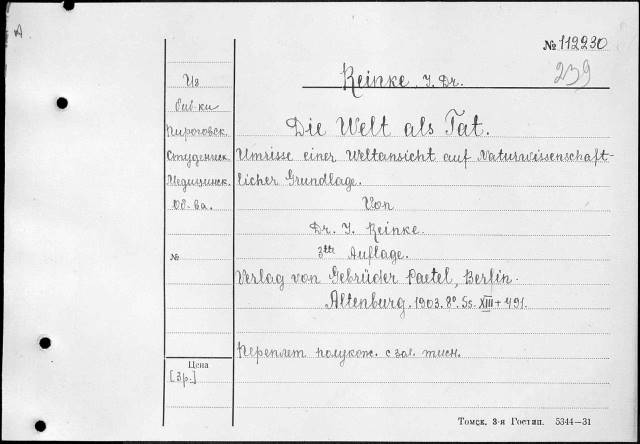 A
№ 112230
239
Reinke, J. Dr.
Из
биб-ки
Пироговск.
Студенческ.
Медицинск.
Об-ва.
№
Die Welt als Tat.
Umrisse einer Weltansicht auf Naturwissenschaft-
licher Grundlage.
Von
Dr. J. Reinke.
3tte Auflage.
Verlag von Gebrüder Paetel, Berlin.
Altenburg. 1903. 8°. Ss. XIII + 491.
Переплет полукож. с зол. тисн.
Цена
[3р.]
Томск, 3-я Гостип. 5344—31